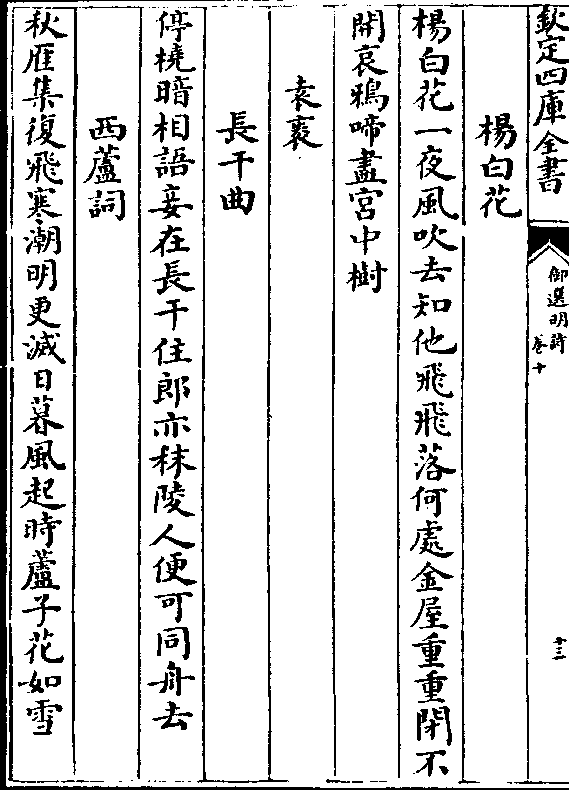 欽定四庫全書
御選明詩
卷十
十三
楊白花
楊白花一夜風吹去知他飛飛落何處金屋重重閉不
開哀鴉啼盡宮中樹
袁袠
長干曲
停橈暗相語妾在長干住郎亦秣陵人便可同舟去
西蘆詞
秋雁集復飛寒潮明更滅日暮風起時蘆子花如雪